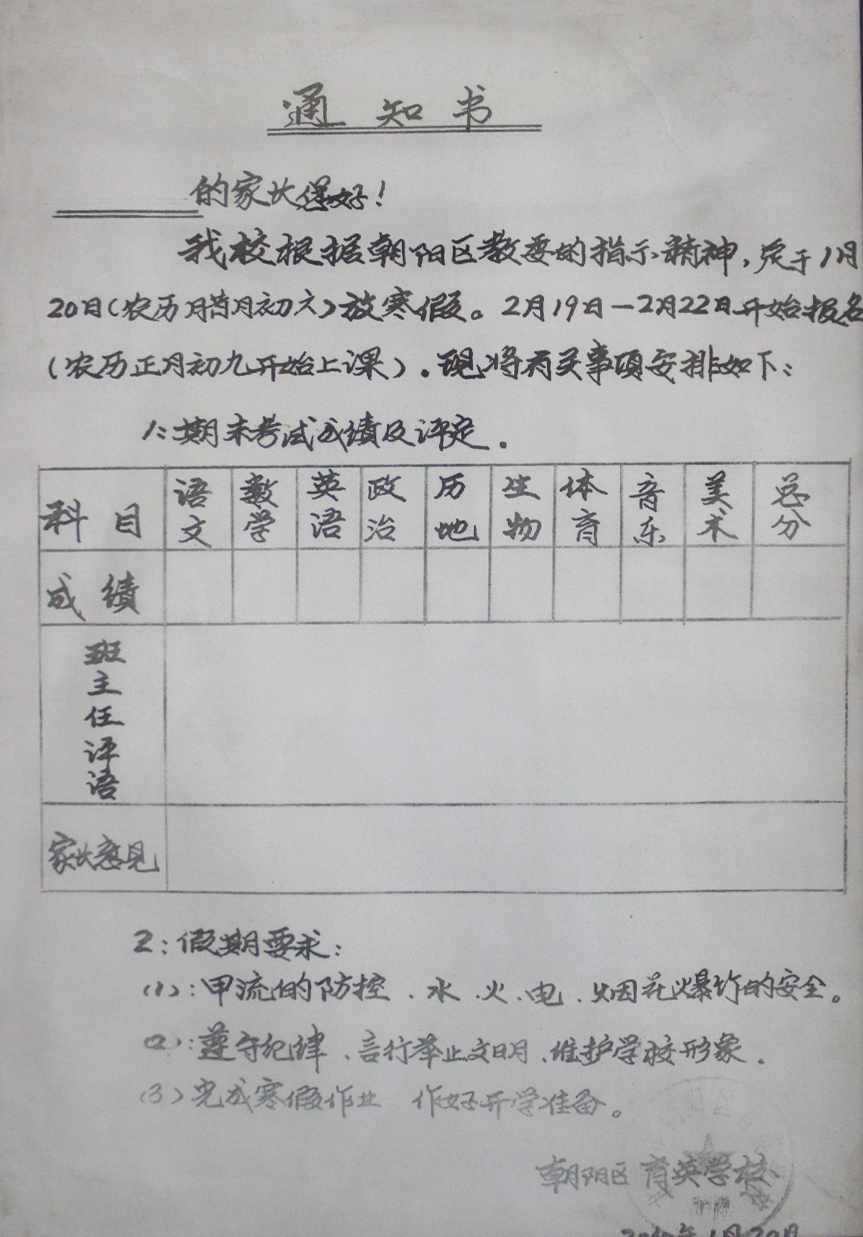 通知书
的家长您好！
我校根据朝阳区教委的指示精神，定于1月
20日（农历腊月初六）放寒假。2月19日—2月22日开始报名
（农历正月初九开始上课）．现将有关事项安排如下：
1：期末考试成绩及评定．
科目 语文 数学 英语 政治 历地 生物 体育 音乐 美术 总分
成绩
班主任评语
家长意见
2：假期要求：
（1）：甲流的防控、水、火、电、烟花爆竹的安全。
（2）：遵守纪律、言行举止文明、维护学校形象．
（3）完成寒假作业 作好开学准备。
朝阳区育英学校
2010年1月20日